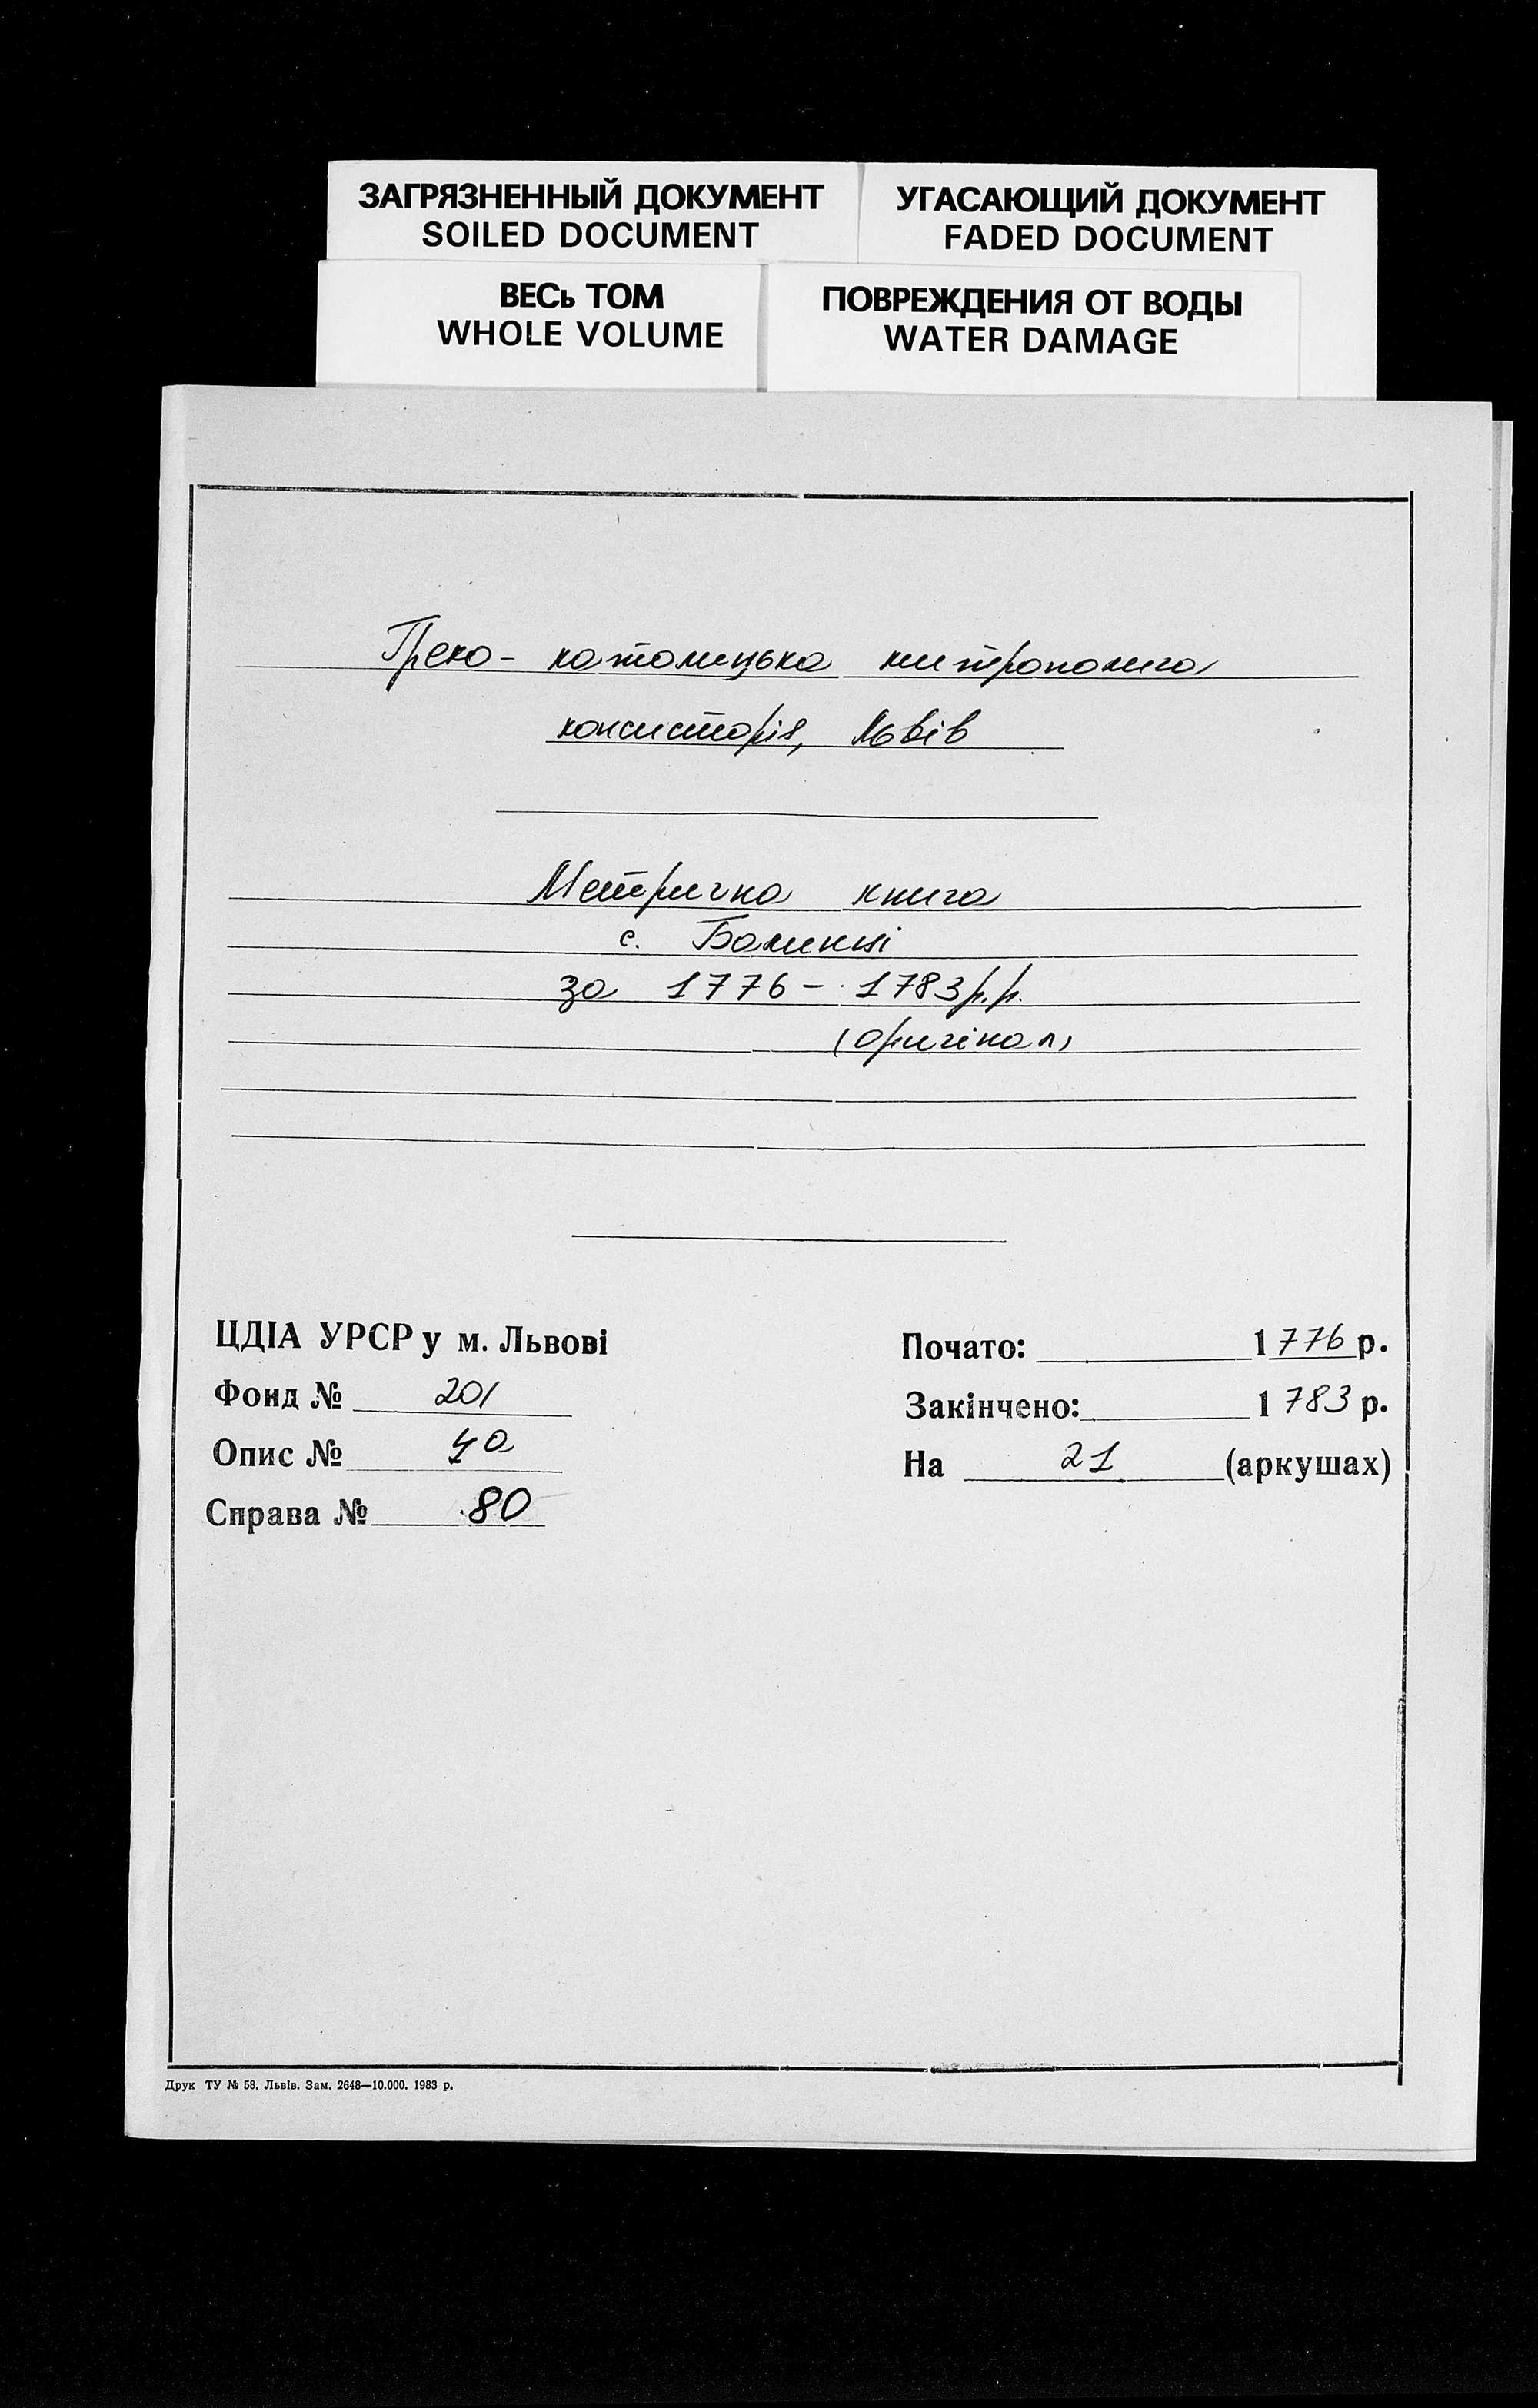 ЗАГРЯЗНЕННЫЙ ДОКУМЕНТ
SOILED DOCUMENT
УГАСАЮЩИЙ ДОКУМЕНТ
FADED DOCUMENT
ВЕСЬ ТОМ
WHOLE VOLUME
ПОВРЕЖДЕНИЯ ОТ ВОДЫ
WATER DAMAGE
Греко- католицька митрополича
консисторія, Львів
Метрична книга
с. Балинці
за 1776 - 1783 р.р.
(оригінал)
ЦДІА УРСР у м. Львові
Фонд № 201
Опис № 4а
Справа № 80
Почато: 1776 р.
Закінчено: 1783 р.
На 21 (аркушах)
Друк ТУ № 58, Львів, Зам. 2648—10.000. 1983 р.